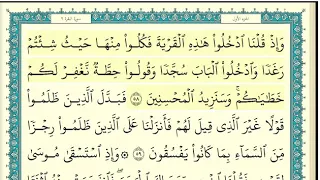 الجزء الأول
سورة البقرة
وَإِذْ قُلْنَا ٱدْخُلُوا۟ هَٰذِهِ ٱلْقَرْيَةَ فَكُلُوا۟ مِنْهَا حَيْثُ شِئْتُمْ
رَغَدًا وَٱدْخُلُوا۟ ٱلْبَابَ سُجَّدًا وَقُولُوا۟ حِطَّةٌ نَّغْفِرْ لَكُمْ
خَطَٰيَٰكُمْ ۚ وَسَنَزِيدُ ٱلْمُحْسِنِينَ ٥٨ فَبَدَّلَ ٱلَّذِينَ ظَلَمُوا۟
قَوْلًا غَيْرَ ٱلَّذِى قِيلَ لَهُمْ فَأَنزَلْنَا عَلَى ٱلَّذِينَ ظَلَمُوا۟ رِجْزًا
مِّنَ ٱلسَّمَآءِ بِمَا كَانُوا۟ يَفْسُقُونَ ٥٩ ۞ وَإِذِ ٱسْتَسْقَىٰ مُوسَىٰ